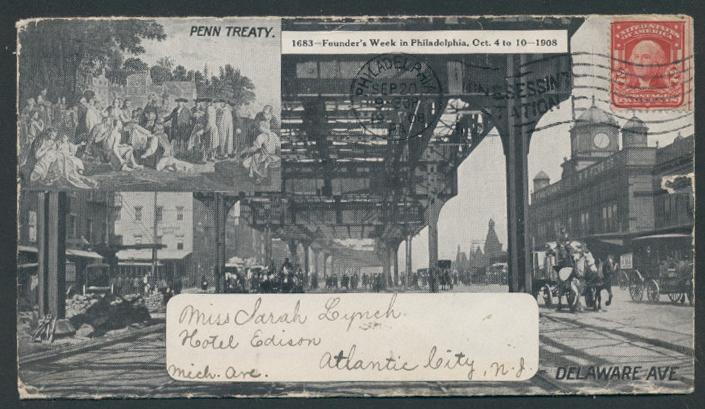 PENN TREATY.
1683—Founder's Week in Philadelphia, Oct. 4 to 10—1908
PHILADELPHIA
SEP 20
1908
PA
STATION
UNITED STATES
OF AMERICA
POSTAGE
TWO CENTS
Miss Sarah Lynch.
Hotel Edison
Mich. Ave. Atlantic City, N.J.
DELAWARE AVE